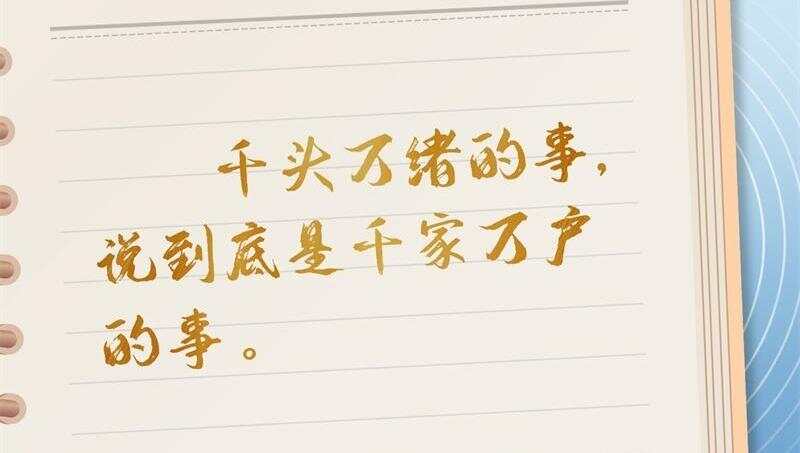 千头万绪的事，
说到底是千家万户
的事。